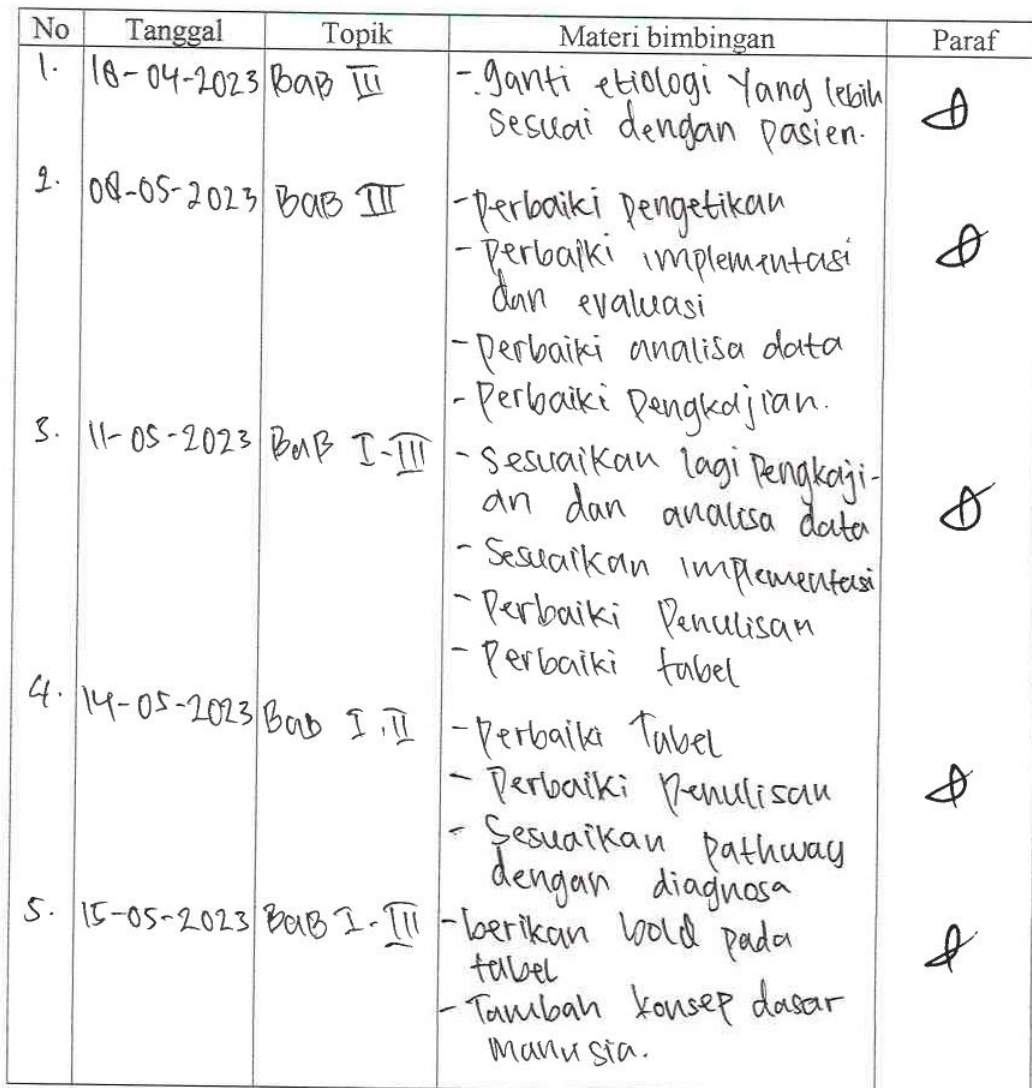 No Tanggal Topik Materi bimbingan Paraf
1. 18-04-2023 BaB III - ganti etiologi Yang lebih
sesuai dengan pasien.
2. 08-05-2023 BaB III - perbaiki pengetikan
- perbaiki implementasi
dan evaluasi
- perbaiki analisa data
- Perbaiki Pengkajian.
3. 11-05-2023 BaB I-III - Sesuaikan lagi Pengkaji-
an dan analisa data
- Sesuaikan implementasi
- Perbaiki Penulisan
- Perbaiki tabel
4. 14-05-2023 Bab I.II - Perbaiki Tabel
- Perbaiki Penulisan
- Sesuaikan pathway
dengan diagnosa
5. 15-05-2023 BaB I-III - berikan bold pada
tabel
- Tambah konsep dasar
manusia.